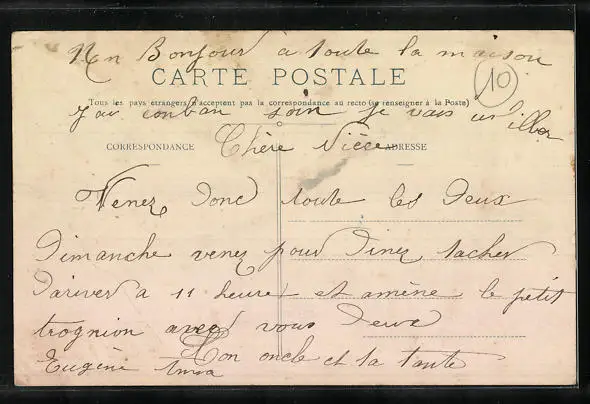 Un Bonjour à toute la maison
CARTE POSTALE
10
Tous les pays étrangers n'acceptent pas la correspondance au recto (se renseigner à la Poste)
soin je vais
CORRESPONDANCE
Chère Nièce
ADRESSE
Venez donc toute les deux
Dimanche venez pour diner tacher
dariver a 11 heure et amène le petit
trognion avec vous deux
Ton oncle et ta tante
Eugène